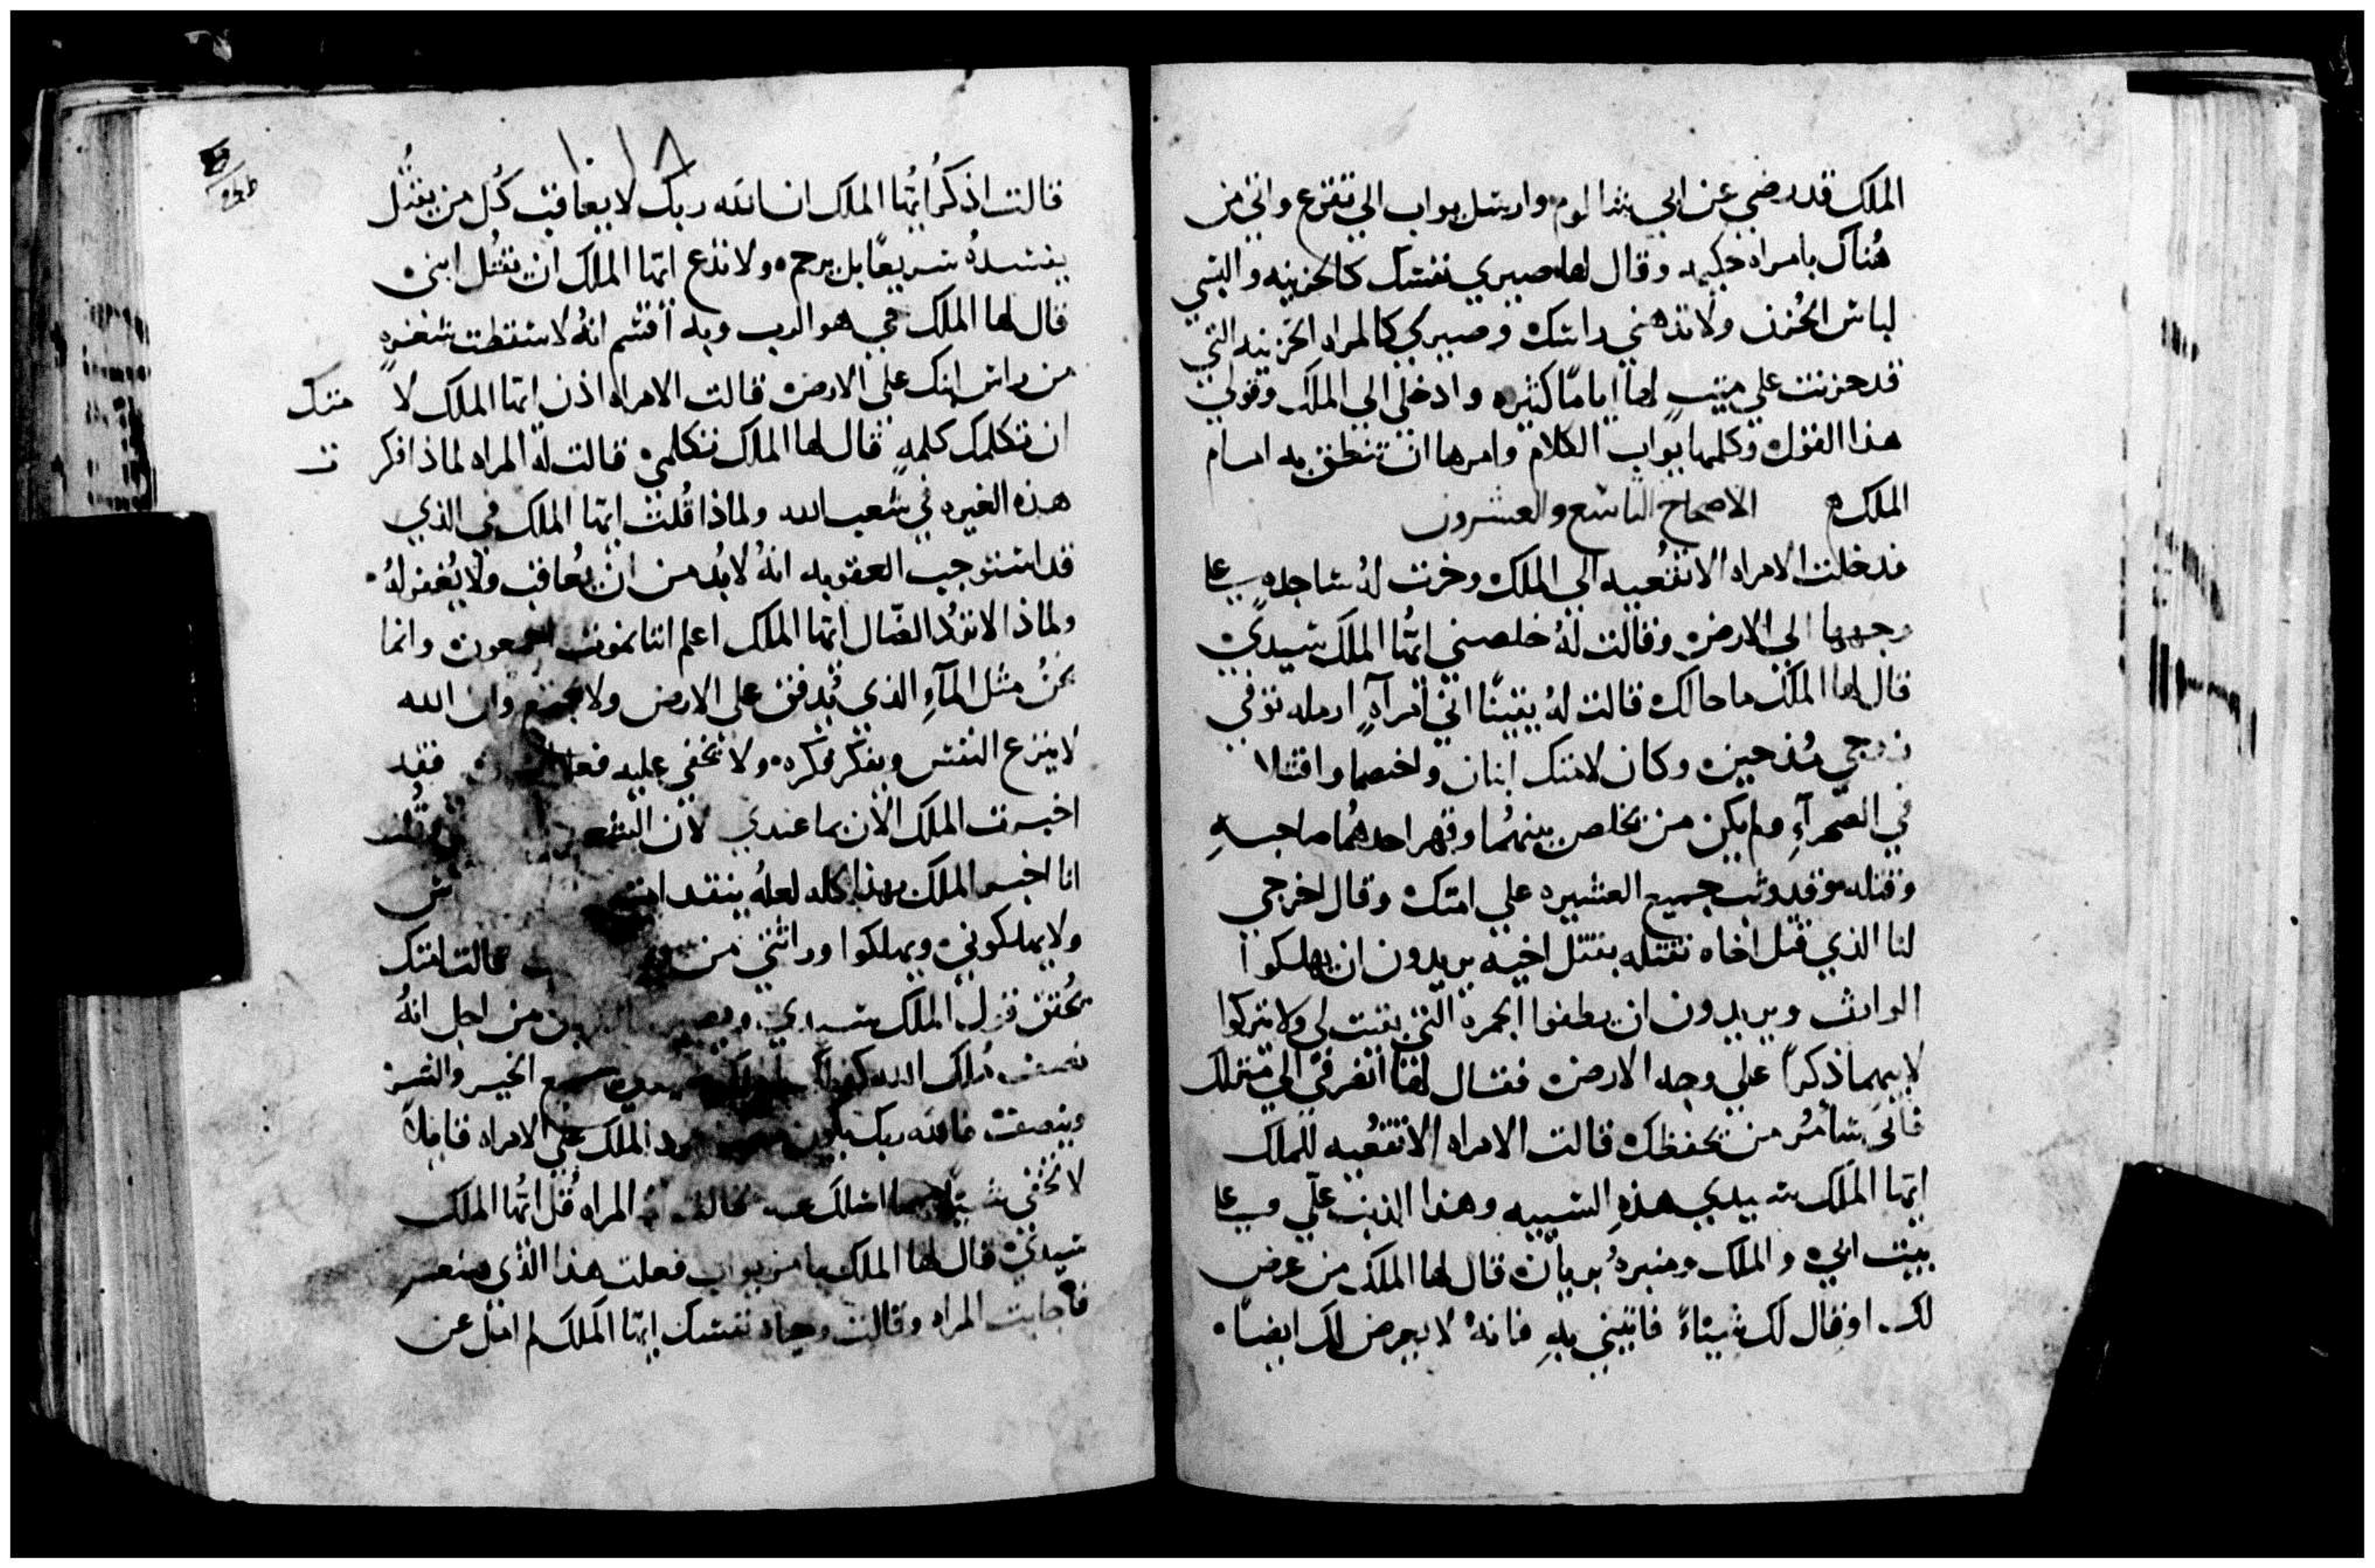 الملك قد رضي عن ابي شالوم وارسل يواب الي تقزع واتي من
هُناك بامراه حكيمه وقال لها صيري نفسك كالحزينه والبسي
لباس الحُزن ولا تدهني راسك وصيري كالمراه الحزينه التي
قد حزنت علي ميتٍ لها اياماً كثيره وادخلي الي الملك وقولي
هذا القول وكلمها يواب الكلام وامرها ان تنطق به امام
الملك الاصحاح التاسع والعشرون
فدخلت الامراه الاتقعيه الي الملك وخرت لهُ ساجده علي
وجهها الي الارض وقالت لهُ خلصني ايُّها الملك سيدي
قال لها الملك ما حالك قالت لهُ يقيناً اني امرآه ارمله توفي
زوجي مُنذ حين وكان لامتك ابنان واختصما واقتتلا
في الصحرآءِ ولم يكن من يخلص بينهُما وقهر احدهُما صاحبهِ
وقتله وقد وثب جميع العشيره علي امتك وقال اخرجي
لنا الذي قتل اخاه نقتله بقتل اخيه يريدون ان يهلكوا
الوارث ويريدون ان يطفوا الجمره التي بقيت لي ولا يتركوا
لابيهما ذكراً علي وجه الارض فقال لها انصرفي الي منزلك
فاني سأمُر من يحفظك قالت الامراه الاتقعيه للملك
ايها الملك سيدي هذهِ السيبه وهذا الذنب عليّ وعلي
بيت ابي والملك ومنبرهُ بريان قال لها الملك من عرض
لك او قال لك شياءً فاتيني بهِ فانهُ لا يعرض لك ايضاً
١٠١٨
قالت اذكُر ايُّها الملك ان الله ربك لا يعاقب كُل من يقتُل
يفسدهُ سريعاً بل يرحم ولا تدع ايها الملك ان يقتُل ابني
قال لها الملك حي هو الرب وبه اقسم انهُ لا سقطت شعرهٍ
من راس ابنك علي الارض قالت الامراه اذن ايها الملك لا متك
ان تكلمك كلمهٍ قال لها الملك تكلمي قالت لهُ المراه لماذا فكر ت
هذه الغيره في شعب الله ولماذا قُلت ايها الملك في الذي
قد استوجب العقوبه انهُ لا بُد من ان يُعاقب ولا يُغفر لهُ
ولماذا لا تردُ الضّال ايها الملك اعلم اننا نموت اجمعون وانما
نحنُ مثل المآءِ الذي يُدفق علي الارض ولا يجتمع وان الله
لا ينزع النفس ويفكر فكره ولا تخفي عليه فقد
اخبرت الملك الان بما عندي لان الشعب
انا اخبر الملك بهذا كله لعلهُ ينقد امته
ولا يهلكوني ويهلكوا وراثتي من قالت امتك
يُحقق قول الملك سيدي من اجل انهُ
ملك الله الخير والشر
وينصت فالله ربك يكون رد الملك علي الامراه قايلاً
لا تخفي شياً مما اسلك عنه قالت لهُ المراه قُل ايُّها الملك
سيدي قال لها الملك يا من يواب فعلت هذا الذي صنعت
فاجابت المراه وقالت وحياه نفسك ايها الملك لم امل عن